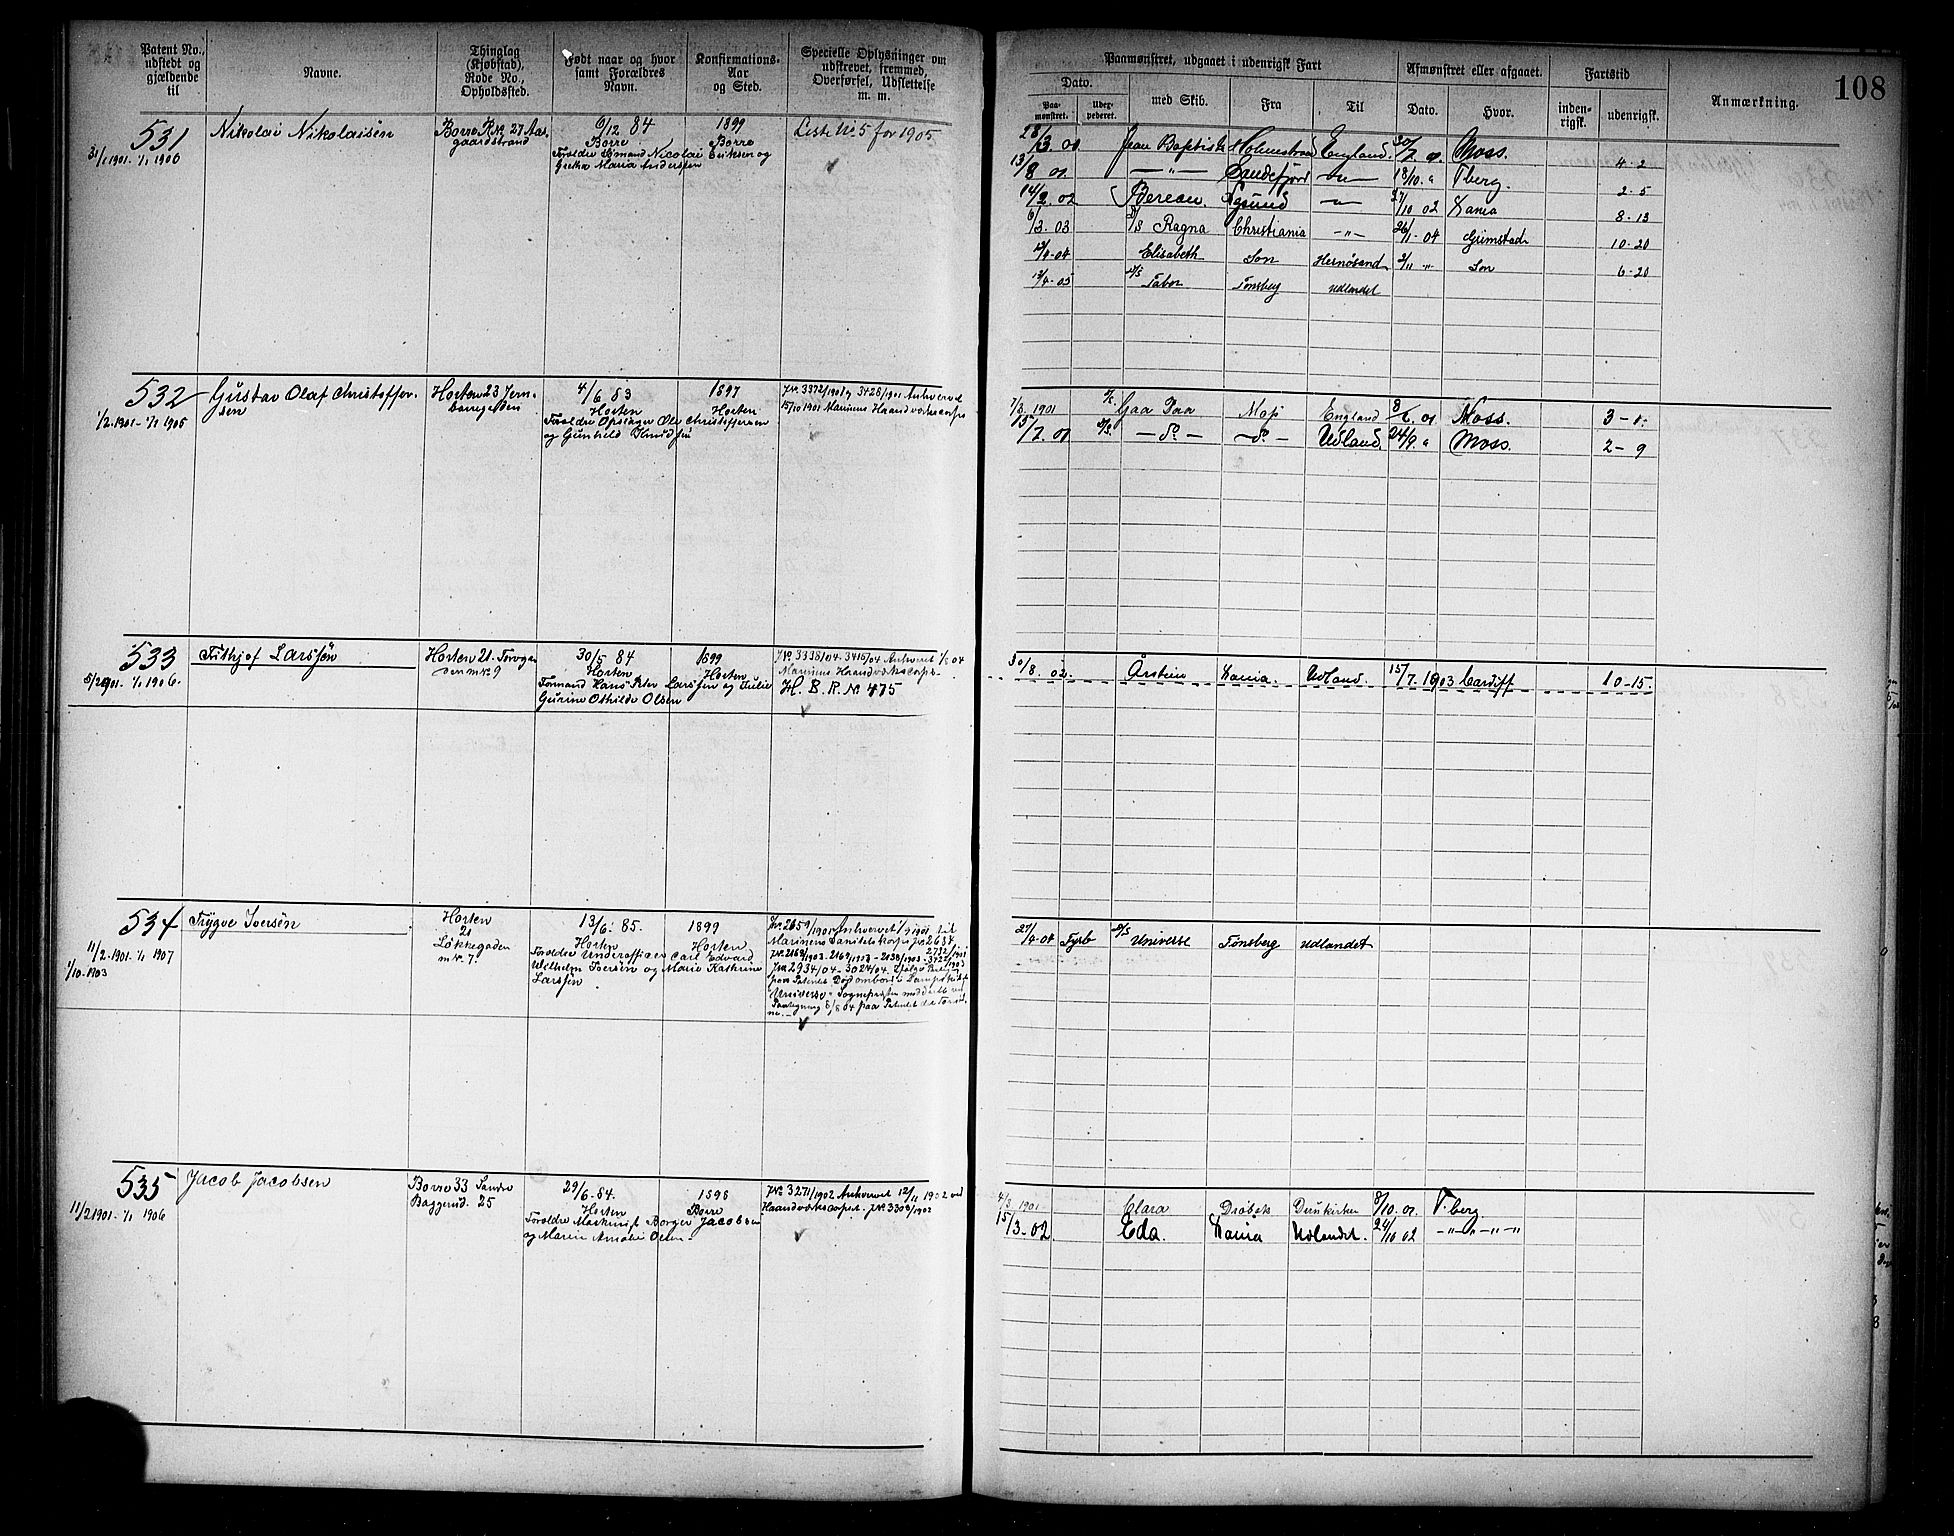 108
Patent No., udstedt og gjældende til
Navne.
Thinglag (Kjøbstad), Rode No., Opholdssted.
Født naar og hvor samt Forældres Navn.
Konfirmations-Aar og Sted.
Specielle Oplysninger om udskrevet, fremmed, Overførsel, Udslettelse m. m.
Paamønstret, udgaaet i udenrigsk Fart
Dato.
Paamønstret.
Uderpederet.
med Skib.
Fra
Til
Afmønstret eller afgaaet.
Dato.
Hvor.
Fartstid
indenrigsk.
udenrigsk.
Anmærkning.
531
31/1 1901. 1/1 1906
Nikolai Nikolaisen
Borre R.No 27 Aasgaardstrand
6/12 84
Borre
Forældre Sømand Nicolai Eriksen og
Maria Andersen
1899
Borre
Liste No 5 for 1905
28/3 01 Jean Baptiste Holmestrand England 30/7 01 Moss. 4-2
13/8 01 —„— Sandefjord —„— 18/10 „ Tberg. 2-5
14/2. 02 —„— 27/10 02 Xania 8-13
6/3. 03 D/S Ragna Christiania —„— 26/1-04 Grimstad 10-20
12/4-04 Elisabeth Son Hernøsand 2/11 „ Son 6-20
13/4-05 Tabor Tønsberg Udlandet
532
1/2. 1901 - 1/1 1905
Gustav Olaf Christoffersen
Horten 23 Jernbarregaden
4/6 83
Horten
Forældre Opslager Ole Christoffersen
og Gunhild Knudsen
1897
Horten
J.No. 3372/1901 og 3428/1901 Anhvervet
15/10 1901 Marinens Haandværkscorps
7/3. 1901 Gaa Paa Moss England 8/6 01 Moss. 3-0.
15/7. 01 D/S. — do. — — do. — Udland. 24/9. „ Moss. 2-9
533
5/2 1901. 1/1 1906.
Frithjof Larssen
Horten 21. Torvgaden m.k. 9
30/5 84
Horten
Formand Hans Peter Larssen og Julie
Gurine Othilde Olsen
1899
Horten
J.No. 3338/04-3415/04 Anhvervet 1/8 04
Marinens Haandværkscorps-
H. B. R. No 475
30/8. 02. Xania. Udland. 15/7. 1903 Cardiff 10-15.
534
11/2. 1901. 1/1 1907
1/10. 1903
Trygve Iversen
Horten
21
Løkkegaden
m.k. 7.
13/6. 85.
Horten
Forældre Underofficer Carl Edvard
Wilhelm Iversen og Marie Kathrine
Larssen
1899
Horten
Marinens
J.No 2934/04-3024/04.
Universe
27/4-04 D/S Universe Tønsberg Udlandet
535
11/2 1901. 1/1 1906
Jacob Jacobsen
Borre 33 Søndre Baggerud. 25
29/6-84.
Horten
Forældre Maskinist Borger Jacobsen
og Maren Amalie Olsen-
1898
Borre
J.No. 3271/1902 Anhvervet 12/11 1902 ved
Haandværkscorpset. J.No. 3308/1902
4/3. 1901 Clara Drøbak Dunkirken 8/10. 01. T.berg.
15/3. 02 Eda. Xania Udlandet. 24/10 02 —„—„—„—